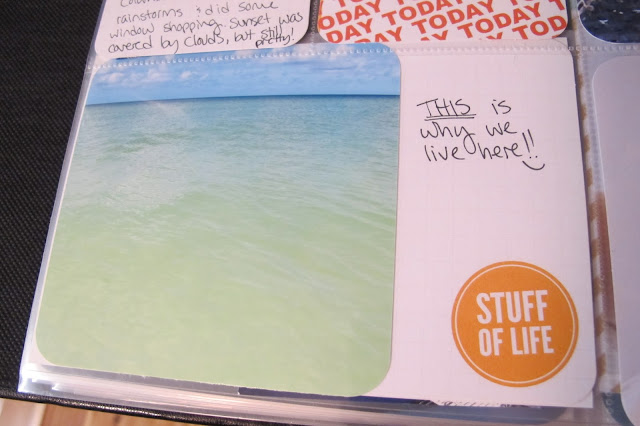 rainstorms & did some
window shopping. Sunset was
covered by clouds, but still
pretty!
ODAY TODAY TODAY
TODAY TODAY TOD
DAY TODAY TODAY
THIS is
why we
live here!!
STUFF
OF LIFE